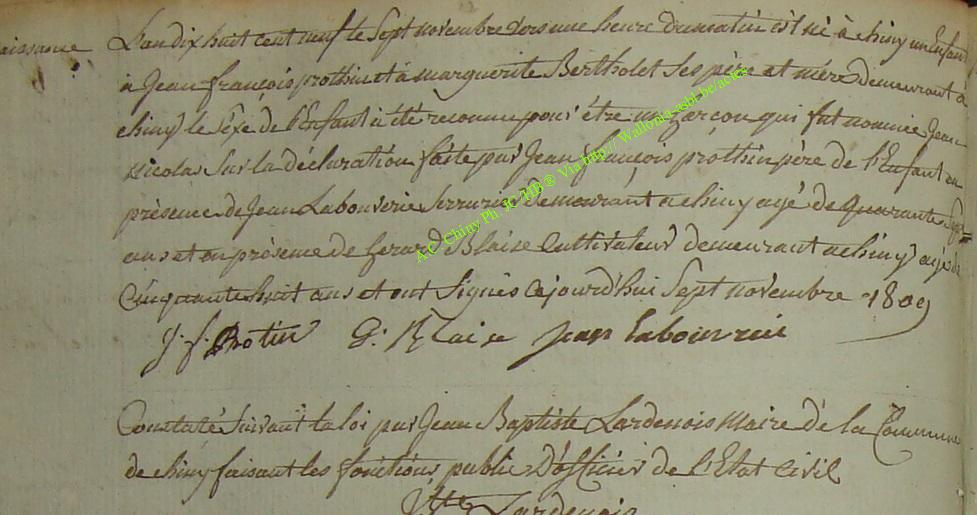 L'an dix huit cent neuf le Sept novembre vers une heure du matin est né à chiny un Enfant
aissance
à Jean françois prothin et à marguerite Bertholet Ses père et mère demeurant à
chiny le Sexe de l'Enfant à été reconnu pour être un garçon qui fut nommée Jean
nicolas Sur la déclaration faite par Jean françois prothin père de l'Enfant en
présence de Jean Labouverie Serrurier Demeurant a chiny agé de quarante Sept
ans et en présence de Gerard Blaise Cultivateur demeurant a chiny agé de
Cinquante huit ans et ont Signés cejourd'hui Sept novembre 1809
J. f. Protin G. Blaise Jean Labouverie
Constaté Suivant la loi par Jean Baptiste Lardenois Maire de la Commune
de chiny faisant les fonctions public D'officier de l'Etat Civil
Lardenois
A.C. Chiny Ph JC MB ® Via http://Wallonia-asbl.be/actes